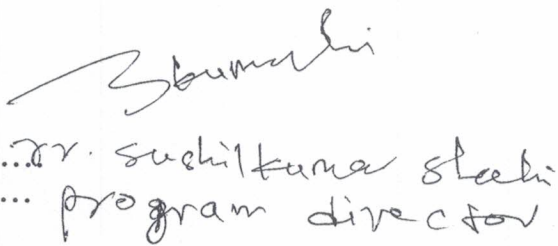 .... Dr. sushilkumar shahi
... program director